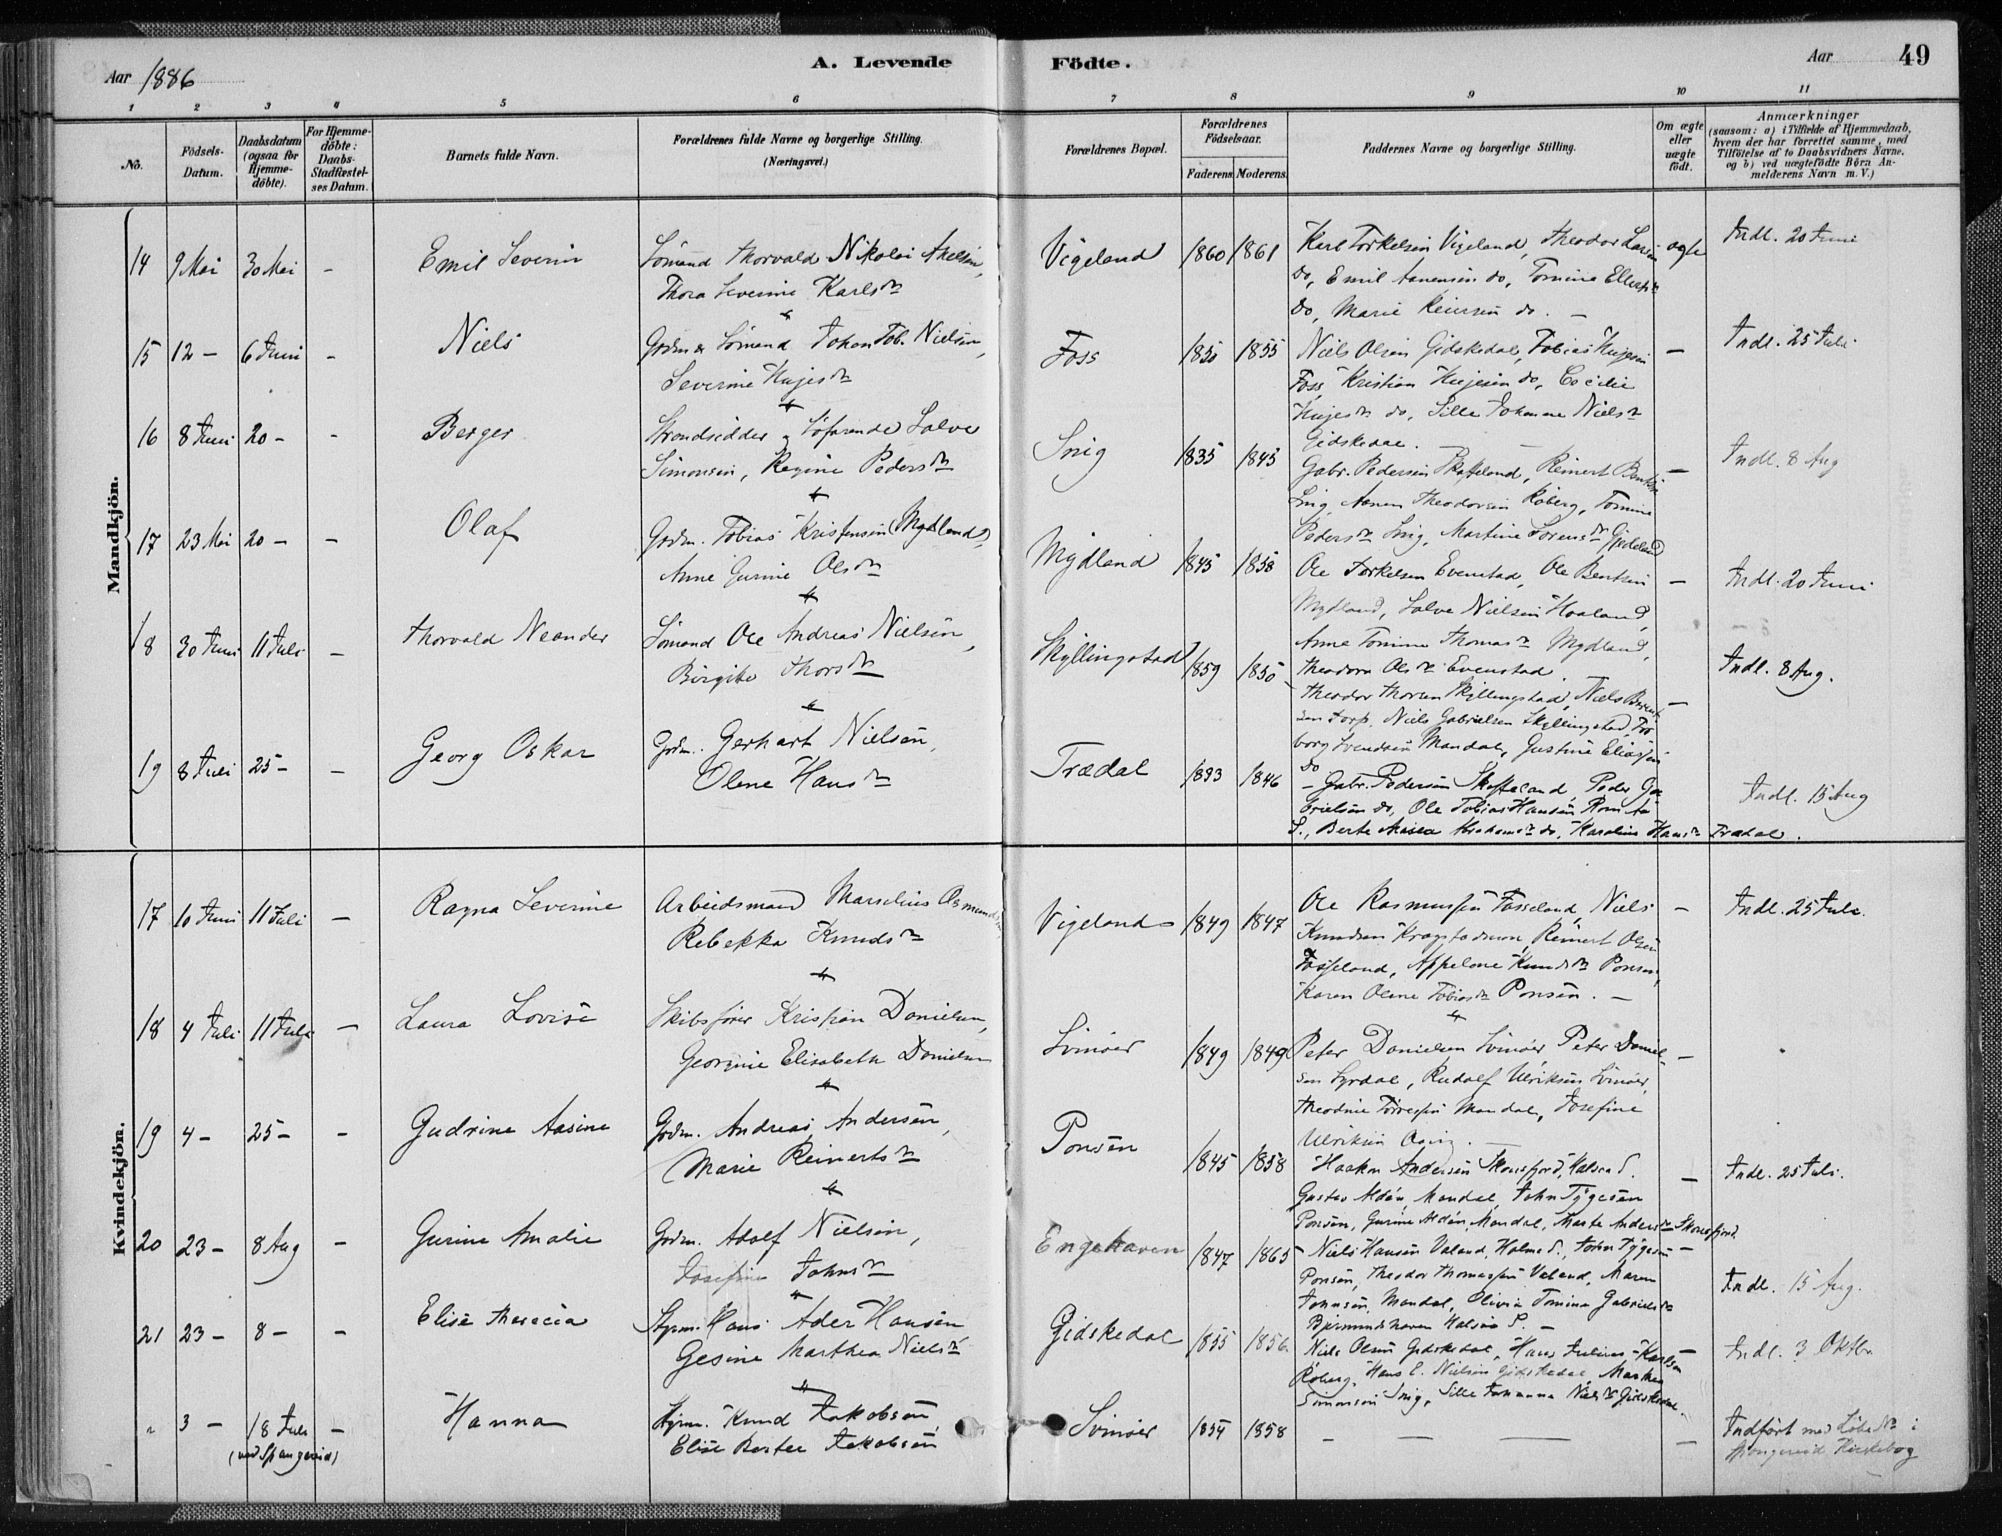 Aar 1886
A. Levende Födte.
Aar 49
1 2 3 4 5 6 7 8 9 10 11
No.
Födsels-Datum.
Daabsdatum (ogsaa for Hjemmedöbte).
For Hjemmedöbte: Daabs-Stadfæstelses Datum.
Barnets fulde Navn.
Forældrenes fulde Navne og borgerlige Stilling. (Næringsvei.)
Forældrenes Bopæl.
Forældrenes Födselsaar.
Faderens Moderens
Faddernes Navne og borgerlige Stilling.
Om ægte eller uægte födt.
Anmærkninger
(saasom: a) i Tilfælde af Hjemmedaab, hvem der har forrettet samme, med Tilföielse af to Daabsvidners Navne, og b) ved uægtefödte Börn Anmelderens Navn m. V.)
Mandkjön.
14 9 Mai 30 Mai - Emil Severin
Sømand Thorvald Nikolai Akelsen,
Thora Severine Karlsdr
Vigeland 1860 1861
Karl Torkelsen Vigeland, Theodor Larsen
do, Emil Aanensen do, Tomine Ellefsdr
do, Marie Reiersen do. -
ægte
Indl. 20 Juni
15 12 - 6 Juni - Niels
Grdm. & Sømand Johan Tob. Nielsen,
Severine
Foss 1850 1855
Niels Olsen Gidskedal, Tobias
Foss, Kristian do, Cecilie
do, Sille Johanne Nielsdr
Gidskedal. -
-
Indl. 25 Juli
16 8 Juni 20 - - Berger
Strandsidder & Søfarende Salve
Simonsen, Regine Pedersdr
Snig 1835 1845
Gabr. Pedersen Skofteland, Reinert Bentsen
Snig, Aanen Theodorsen Roberg, Tomine
Pedersdr Snig, Martine Sørensdr
-
Indl. 8 Aug
17 23 Mai 20 - - Olaf
Grdm. Tobias Kristensen (Mydland),
Anne Gurine Olsdr
Mydland 1845 1858
Ole Torkelsen Evenstad, Ole Bentsen
Mydland, Salve Nielsen Haaland,
Anne Tomine Thomasdr Mydland,
Theodora Olsdr Evenstad.
-
Indl. 20 Juni
18 30 Juni 11 Juli - Thorvald Neander
Sømand Ole Andreas Nielsen,
Birgite Thorsdr
Skjllingstad 1859 1850
Theodor Thorsen Skjllingstad, Niels Berent
sen Torp, Niels Gabrielsen Skjllingstad,
Svendsen Mandal, Gustine Eliassen
do
-
Indl. 8 Aug.
19 8 Juli 25 - - Georg Oskar
Grdm. Gerhart Nielsen,
Olene Hansdr
Trædal 1833 1846
- Gabr. Pedersen Skofteland, Peder Ga
brielsen do, Ole Tobias Hansen
S., Berte Abrahamsdr do, Karoline Hansdr Trædal.
Indl. 15 Aug
Kvindekjön.
17 10 Juni 11 Juli - Ragna Severine
Arbeidsmand Marselius
Rebekka Knudsdr
Vigeland 1849 1847
Ole Rasmussen Fosseland, Niels
Knudsen Reinert Olsen
Fosseland, Appelone Knudsdr Ponsen,
Karen Olene Tobiasdr Ponsen. -
-
Indl. 25 Juli
18 4 Juli 11 Juli - Laura Lovise
Skibsfører Kristian Danielsen,
Georgine Elisabeth Danielsen
Svinøer 1849 1849
Peter Danielsen Svinøer, Peter Daniel-
sen Syrdal, Rudolf Ulriksen Svinøer,
Theodine Mandal, Josefine
Ulriksen -
-
19 4 - 25 - - Gudrine Aasine
Grdm. Andreas Andersen,
Marie Reinertsdr
Ponsen 1845 1858
Haakon Andersen Skonsfjord, Halsaa S.
Gustav Aldén Mandal, John Tygesen
Ponsen, Gurine Aldén, Mandal, Marte Andersdr Skonsfjord
-
Indl. 25 Juli.
20 23 - 8 Aug - Gurine Amalie
Grdm. Adolf Nielsen,
Josefine Johnsdr
Engehaven 1847 1865
- Niels Hansen Valand, Holme S., John Tygesen
Ponsen, Theodor Thomassen Valand, Maren
Johnsen, Mandal, Olivia Tomine Gabrielsdr
Halsaa S. -
-
Indl. 15 Aug.
21 23 - 8 - - Elise Theresia
Styrm. Hans Ader Hansen
Gesine Marthea Nielsdr
Gidskedal 1855 1856
Niels Olsen Gidskedal, Hans Julius Karlsen
Roberg, Hans E. Nielsen Gidskedal,
Simonsen Snig, Sille Johanna Nielsdr Gidskedal.
-
Indl. 3 Oktbr
" 3 - 18 Juli - Hanna
(ved Spangereid)
Styrm. Knud Jakobsen,
Elise Bertee Jakobsen
Svinøer 1854 1858
- - - -
Indført med Løbe No i
Spangereid Kirkebog